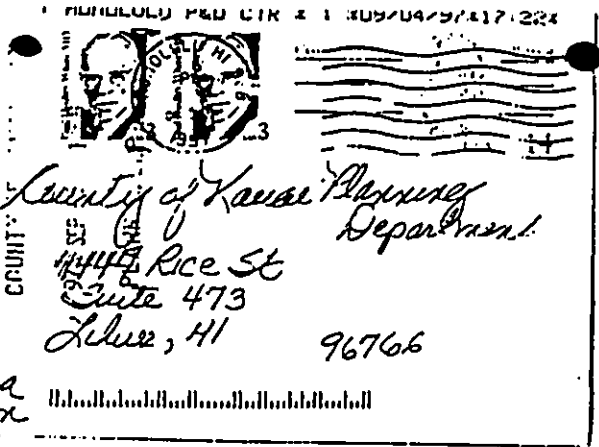 HONOLULU P&D CTR # 1 #09/04/97#17:22#
HI
COUNTY
County of Kauai Planning
Department
4444 Rice St
Suite 473
Lihue, HI 96766